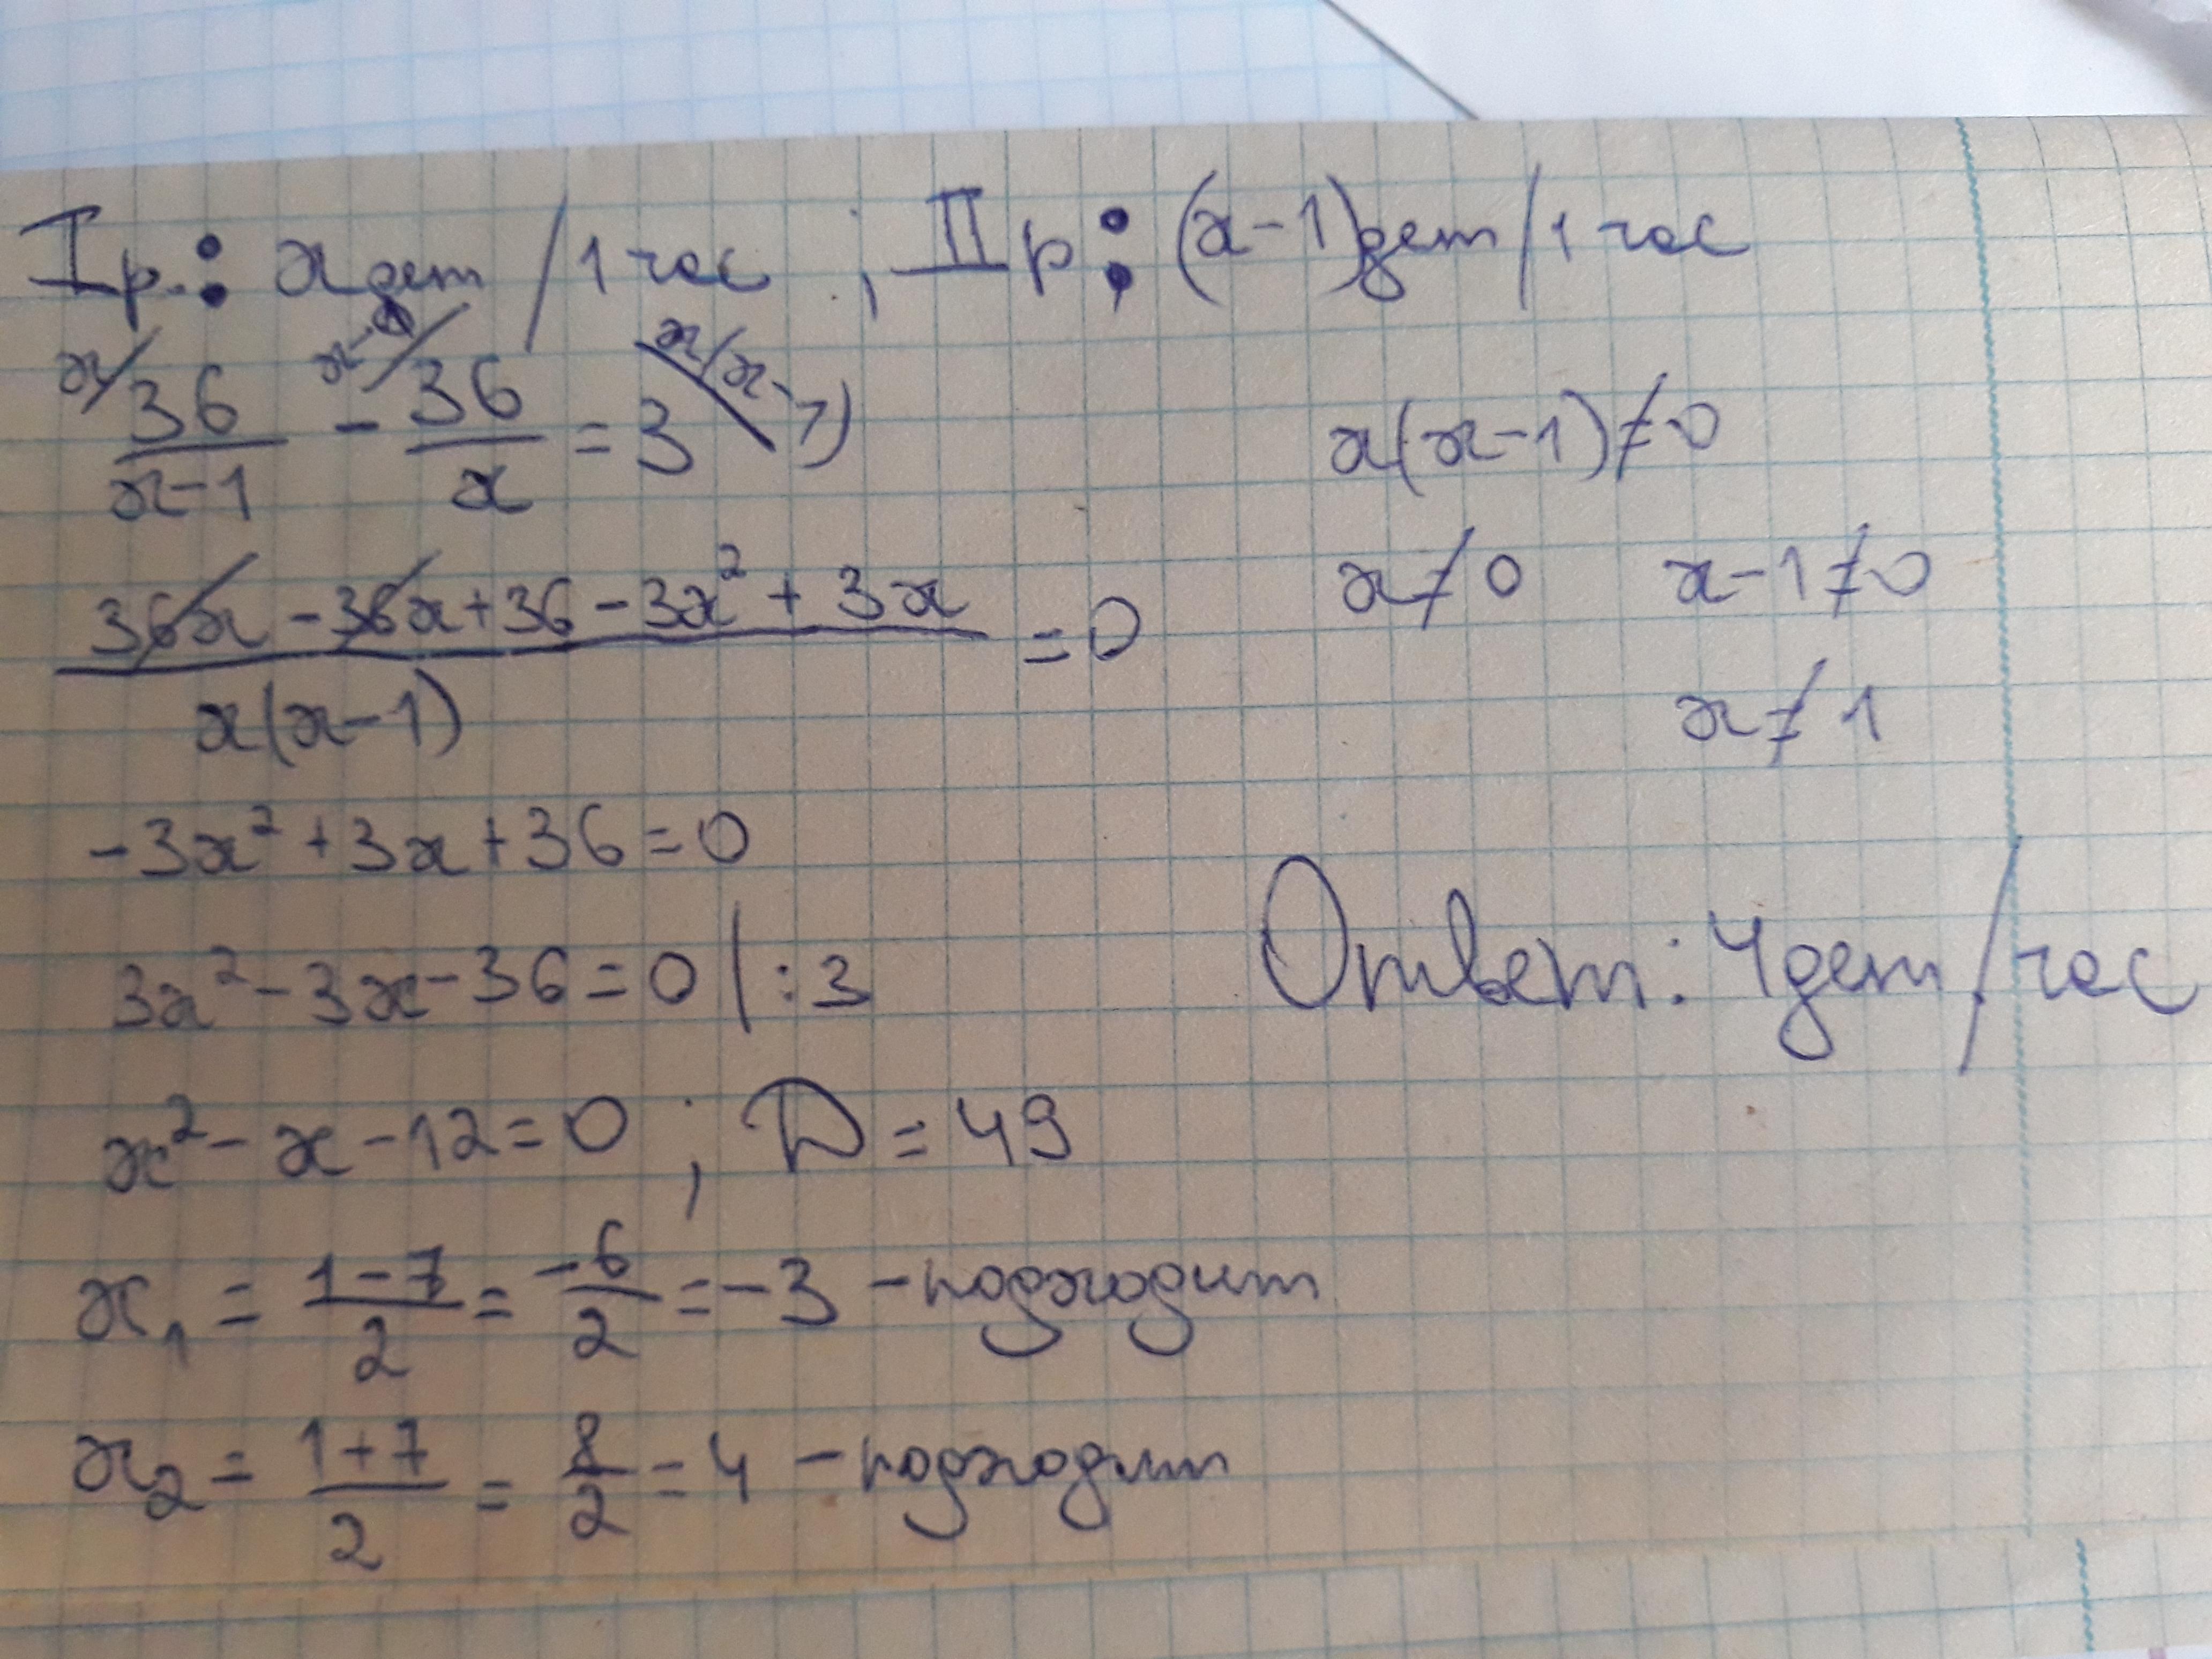 I р.: x дет / 1 час ; II р: (x-1) дет / 1 час
x/ 36/(x-1) - x-1/ 36/x = 3 x(x-1)
(36x - 36x + 36 - 3x² + 3x)/(x(x-1)) = 0
-3x² + 3x + 36 = 0
3x² - 3x - 36 = 0 | : 3
x² - x - 12 = 0 ; D = 49
x₁ = (1-7)/2 = -6/2 = -3 - подходит
x₂ = (1+7)/2 = 8/2 = 4 - подходит
x(x-1) ≠ 0
x ≠ 0 x-1 ≠ 0
x ≠ 1
Ответ: 4 дет/час